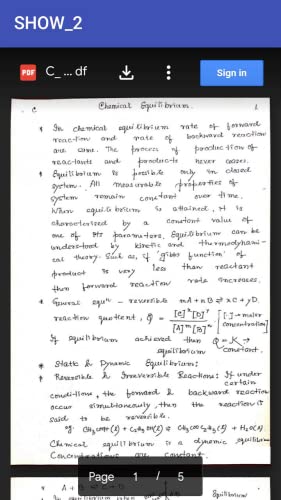 SHOW_2
PDF C_ ... df Sign in
C Chemical Equilibrium. 1
In chemical equilibrium rate of forward
reaction and rate of backward reaction
are same. The process of production of
reactants and products never ceases.
Equilibrium is possible only in closed
system. All measurable properties of
system remain constant over time.
When equilibrium is attained, it is
characterised by a constant value of
one of its parameters. Equilibrium can be
understood by kinetic and thermodynami-
cal theory. Such as, if 'gibbs function' of
product is very less than reactant
then forward reaction rate increases.
equⁿ – reversible mA + nB ⇌ xC + yD.
reaction quotient, Q = [C]ˣ[D]ʸ / [A]ᵐ[B]ⁿ [[ ] → molar concentration]
If equilibrium achieved then Q = K → equilibrium constant.
Static & Dynamic Equilibrium:
Reversible & Irreversible Reactions: If under
certain
conditions, the forward & backward reaction
occur simultaneously then the reaction is
said to be reversible.
CH₃COOH(l) + C₂H₅OH(l) ⇌ CH₃COOC₂H₅(l) + H₂O(l)
Chemical equilibrium is a dynamic equilibrium
Concentrations are constant.
Page 1 / 5